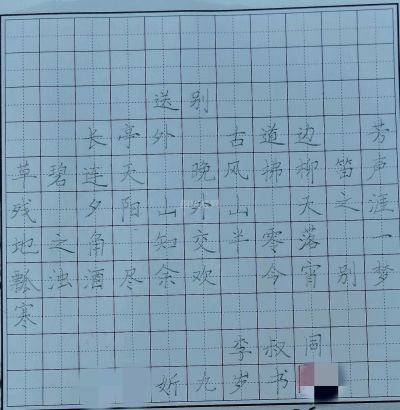 送别
长亭外 古道边 芳
草碧连天 晚风拂柳笛声
残 夕阳山外山 天之涯
地之角 知交半零落 一
瓢浊酒尽余欢 今宵别梦
寒
李叔同
妡九岁书